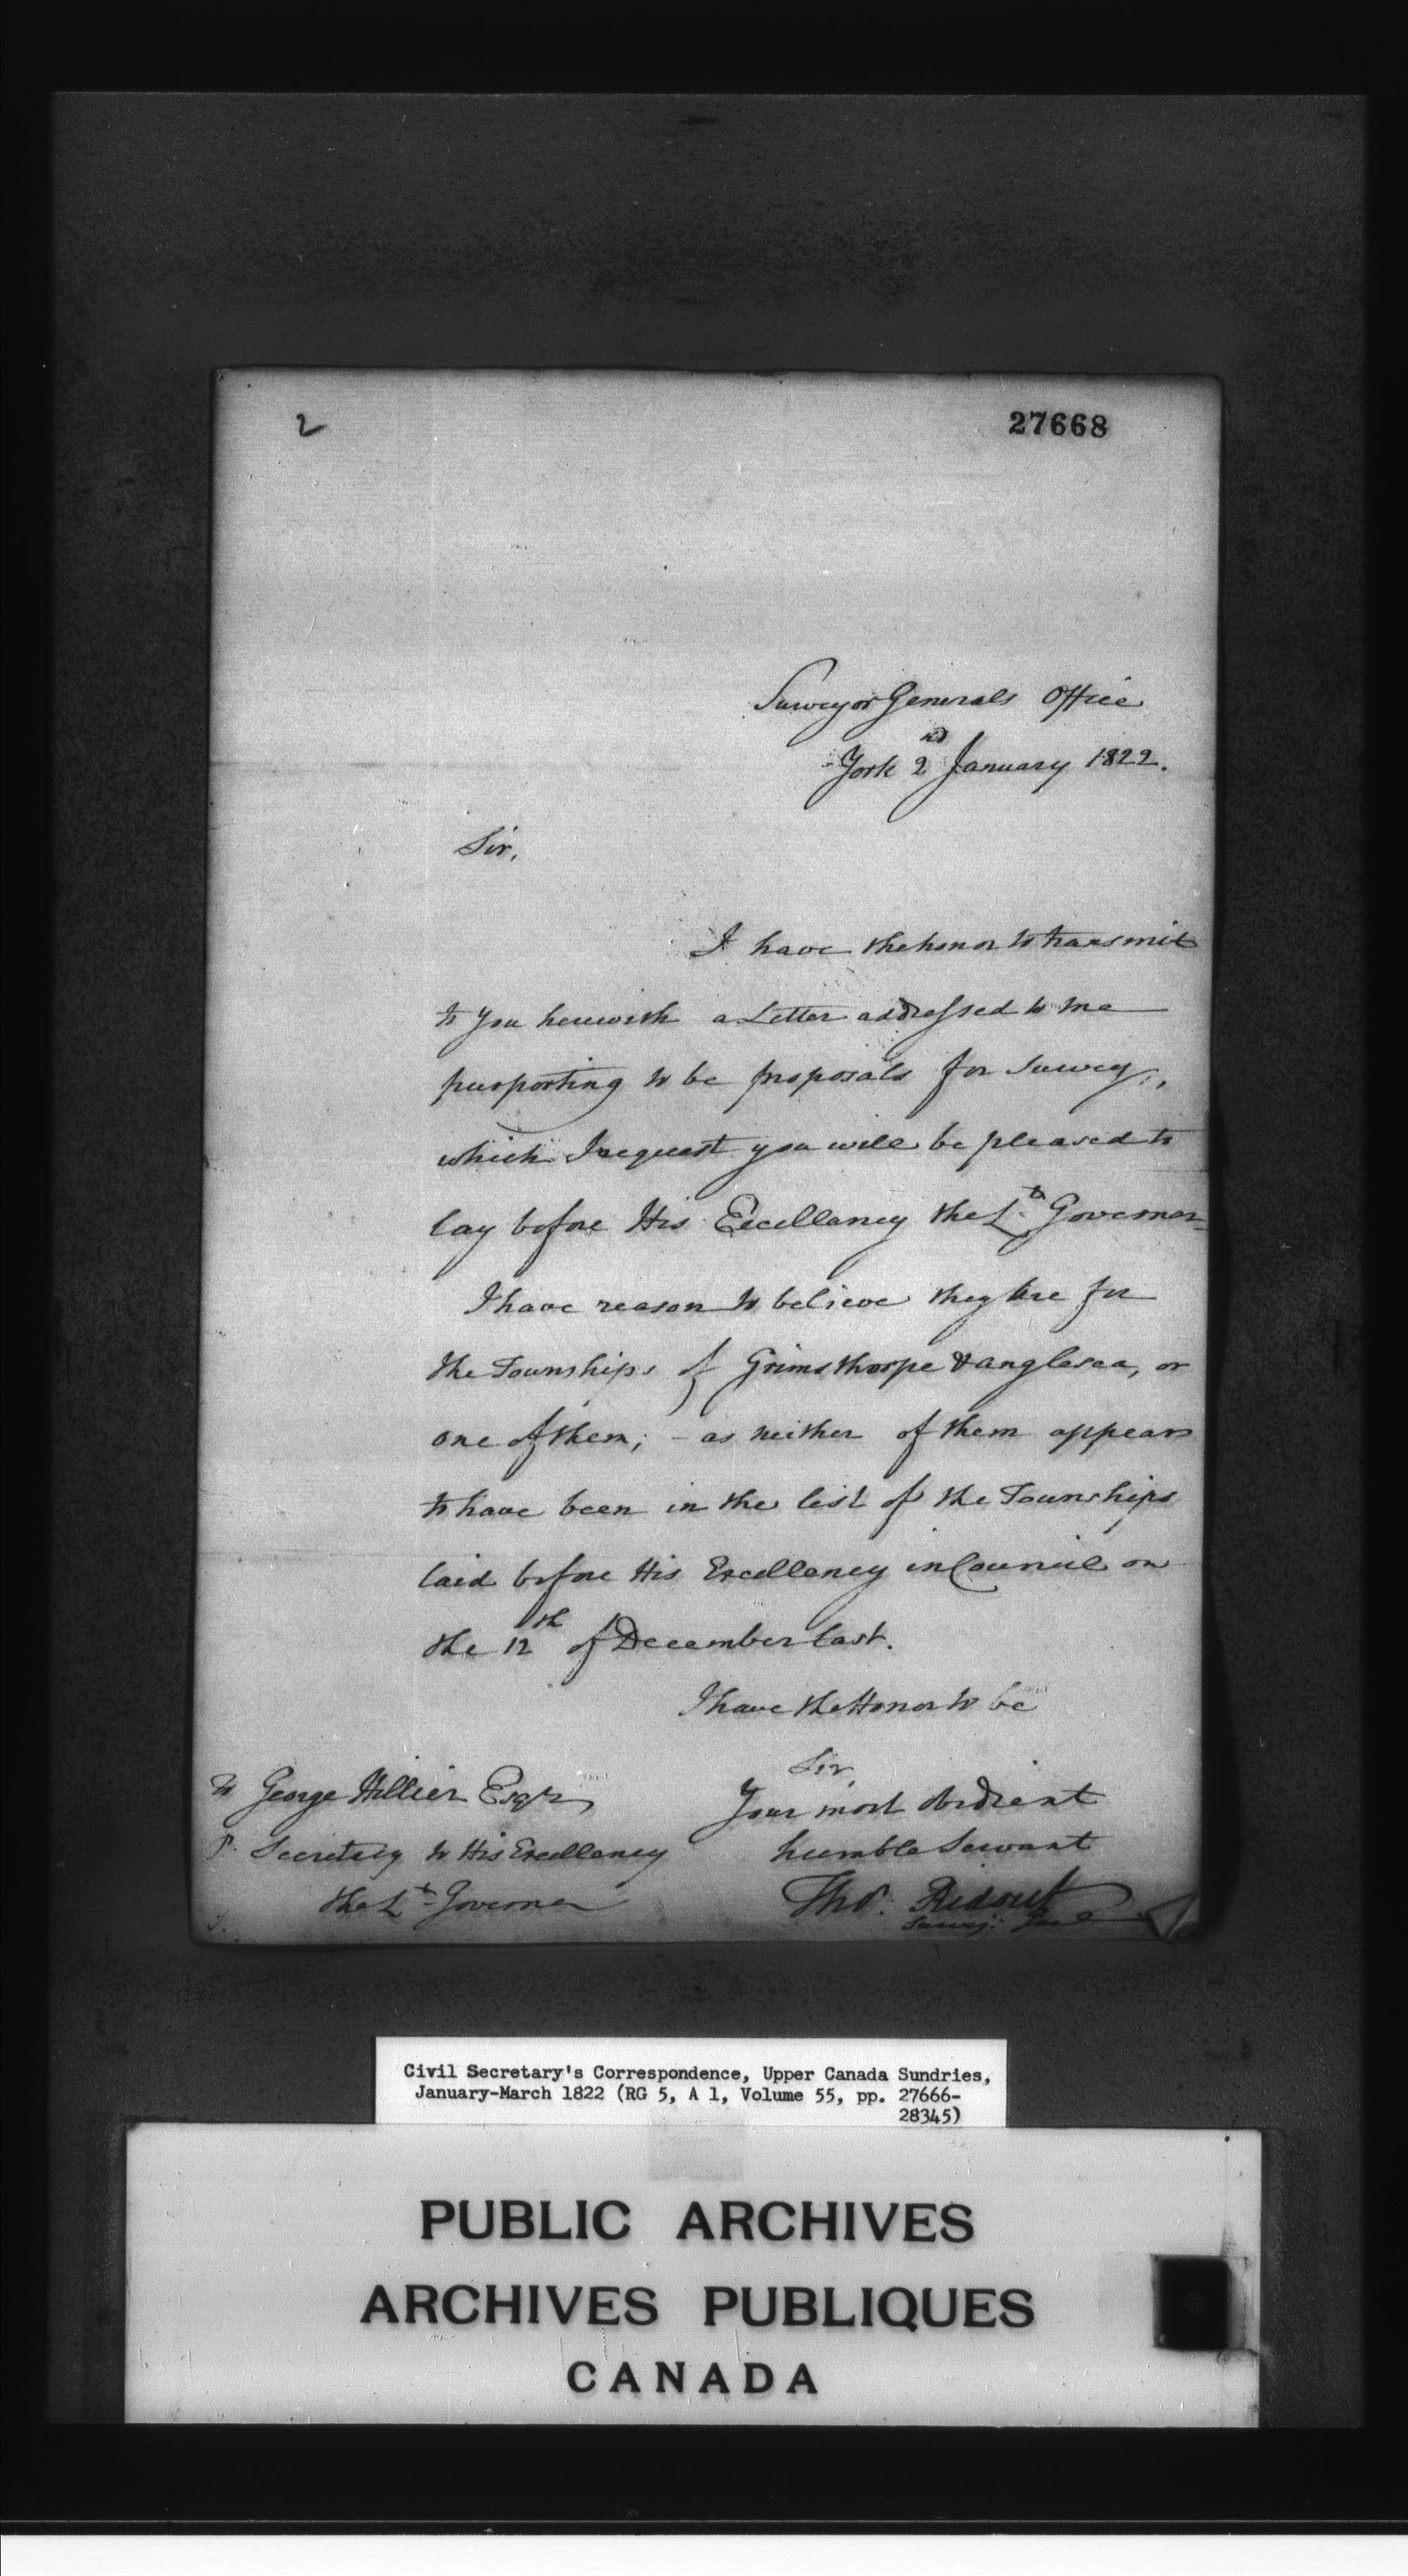 2
27668
Surveyor Generals Office
York 2nd January 1822.
Sir,
I have the honor to transmit
to you herewith a Letter addressed to me
purporting to be proposals for Survey,
which I request you will be pleased to
lay before His Excellency the Lt Governor
I have reason to believe they are for
the Townships of Grimsthorpe & anglesea, or
one of them; - as neither of them appears
to have been in the list of the Townships
laid before His Excellency in Council on
the 12th of December last.
I have the Honor to be
Sir,
Your most obedient
humble Servant
Thos. Ridout
Survey: Genl
To George Hillier Esqr
P. Secretary to His Excellency
the Lt Governor
Civil Secretary's Correspondence, Upper Canada Sundries,
January-March 1822 (RG 5, A 1, Volume 55, pp. 27666-
28345)
PUBLIC ARCHIVES
ARCHIVES PUBLIQUES
CANADA